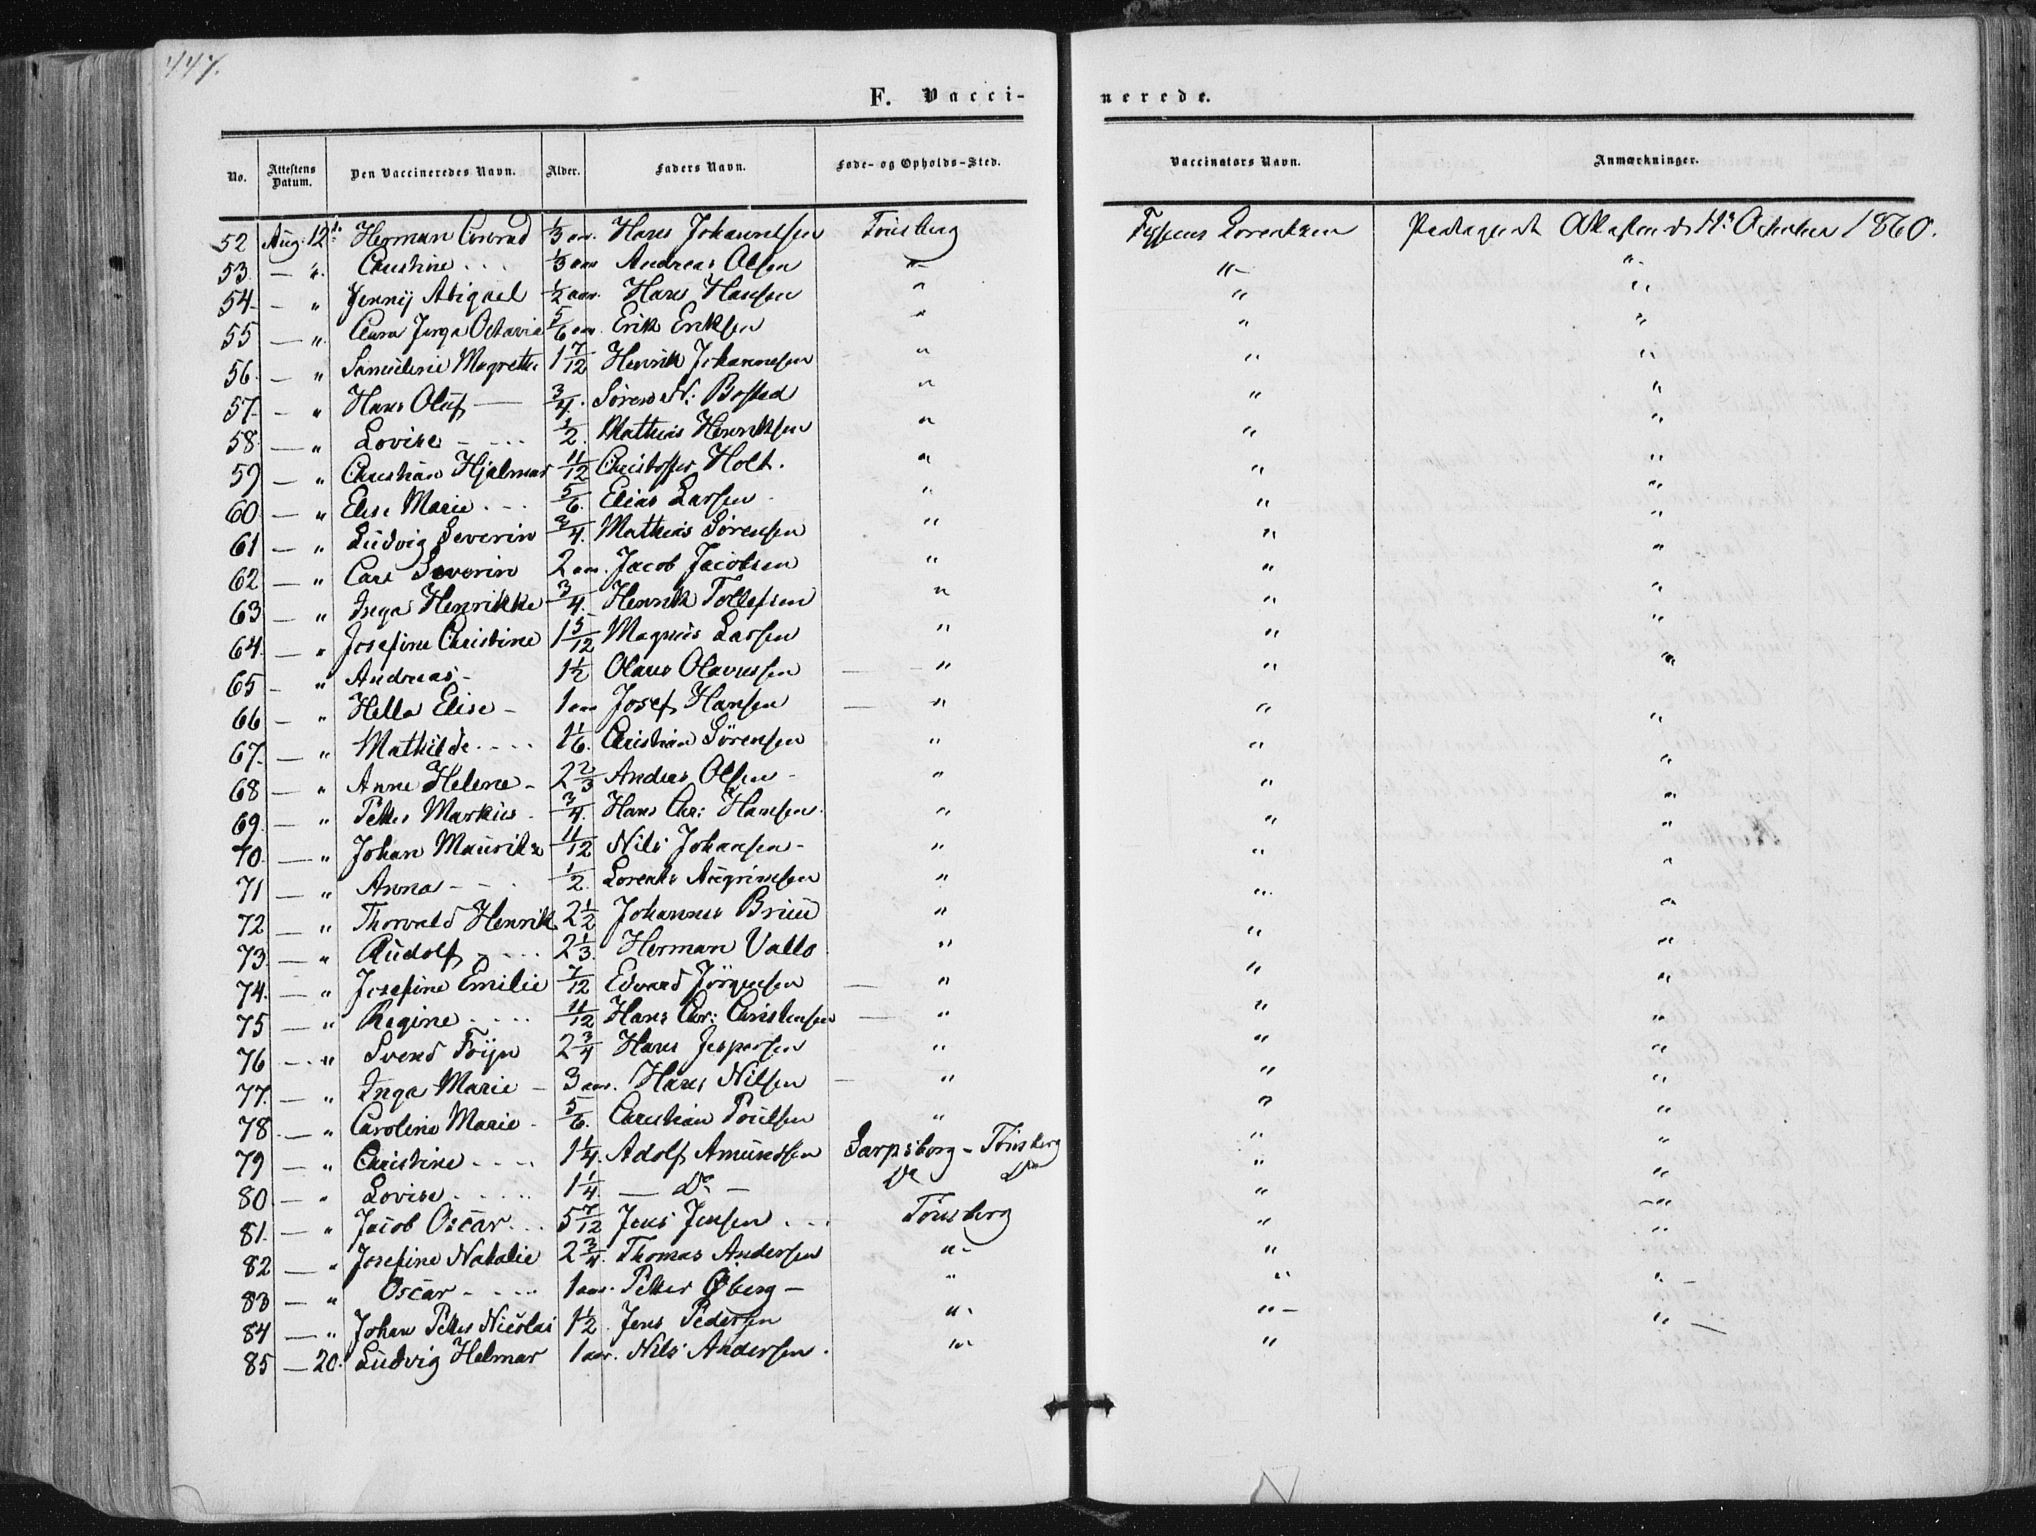 447.
F. Vacci- nerede.
No. Attestens Datum. Den Vaccineredes Navn. Alder. Faders Navn. Føde- og Opholds-Sted. Vaccinators Navn. Anmærkninger.
52 Aug. 12. Herman Conrad 1/3 aar. Hans Johannesen Tønsberg Lorentzen Attesten d. 4de October 1860.
53. — " Christine . . . 1/3 aar Andreas Olsen "- "- "-
54. — " Jenny Abigael 1/2 aar. Hans Hansen " " "
55 — " Clara Octavia 5/6 aar. Erik Eriksen " " "
56. — " Samueline Magrethe 1 7/12 Henrik Johannesen " " "
57. — " Hans Oluf — 3/4. Søren N: Bosted " " "
58. — " Lovise - - - 1/2. Mathias Henriksen " " "
59 — " Christian Hjalmar 11/12 Christoffer Holt. " " "
60 — " Elise Marie . - - 5/6. Elias Larsen - " " "
61 — " Ludvig Severin 3/4. Mathias Sørensen " " "
62 — " Carl Severin 2 aar. Jacob Jacobsen " " "
63 — " Inga Henrikke 3/4. Henrik Tollefsen " " "
64. — " Josefine Christine 1 5/12 Magnus Larsen " " "
65 - " Andreas - 1 1/2 Olaus Olavesen — — " " "
66 — " Hella Elise - 1 aar Josef Hansen — " " "
67. — " Mathilde. - - - 1 1/6. Christian Sørensen " " "
68 — " Anne Helene - 2 2/3 Anders Olsen - " " "
69. — " Petter Markus - 3/4. Hans Chr: Hansen. " " "
70. — " Johan Mauritz 11/12 Nils Johansen - " " "
71 — " Anna - - . 1/2. Lorents Augrimsen " " "
72 — " Thorvald Henrik 2 1/2 Johannes Bruu " " "
73. — " Rudolf - . . . 2 1/3. Herman Vallo " " "
74. — " Josefine Emilie 7/12 Edvard Jörgensen — " " "
75 — " Regine . . . . 11/12 Hans Chr: Christensen — " " "
76 — " Svend Foÿn 2 3/4 Hans Jespersen " " "
77. — " Inga Marie - 3 aar. Hans Nilsen — " " "
78. — " Caroline Marie - 5/6. Christian Poulsen " " "
79 — " Christine - - . . 1 1/4. Adolf Amundsen Sarpsborg - Tønsberg " "
80. — " Lovise . . . . . 1 1/4. — Do — Do Do " "
81. — " Jacob Oscar . . . 5 7/12 Jens Jensen . . . Tønsberg " -"
82 — " Josefine Natalie 2 3/4. Thomas Andersen "- " "
83 — " Oscar - . . . . 1 aar. Petter Øberg — " " " -
84 — " Johan Petter Nicolai 1 1/2. Jens Pedersen " "- "
85 — 20. Ludvig Helmar 1 aar. Nils Andersen. " "